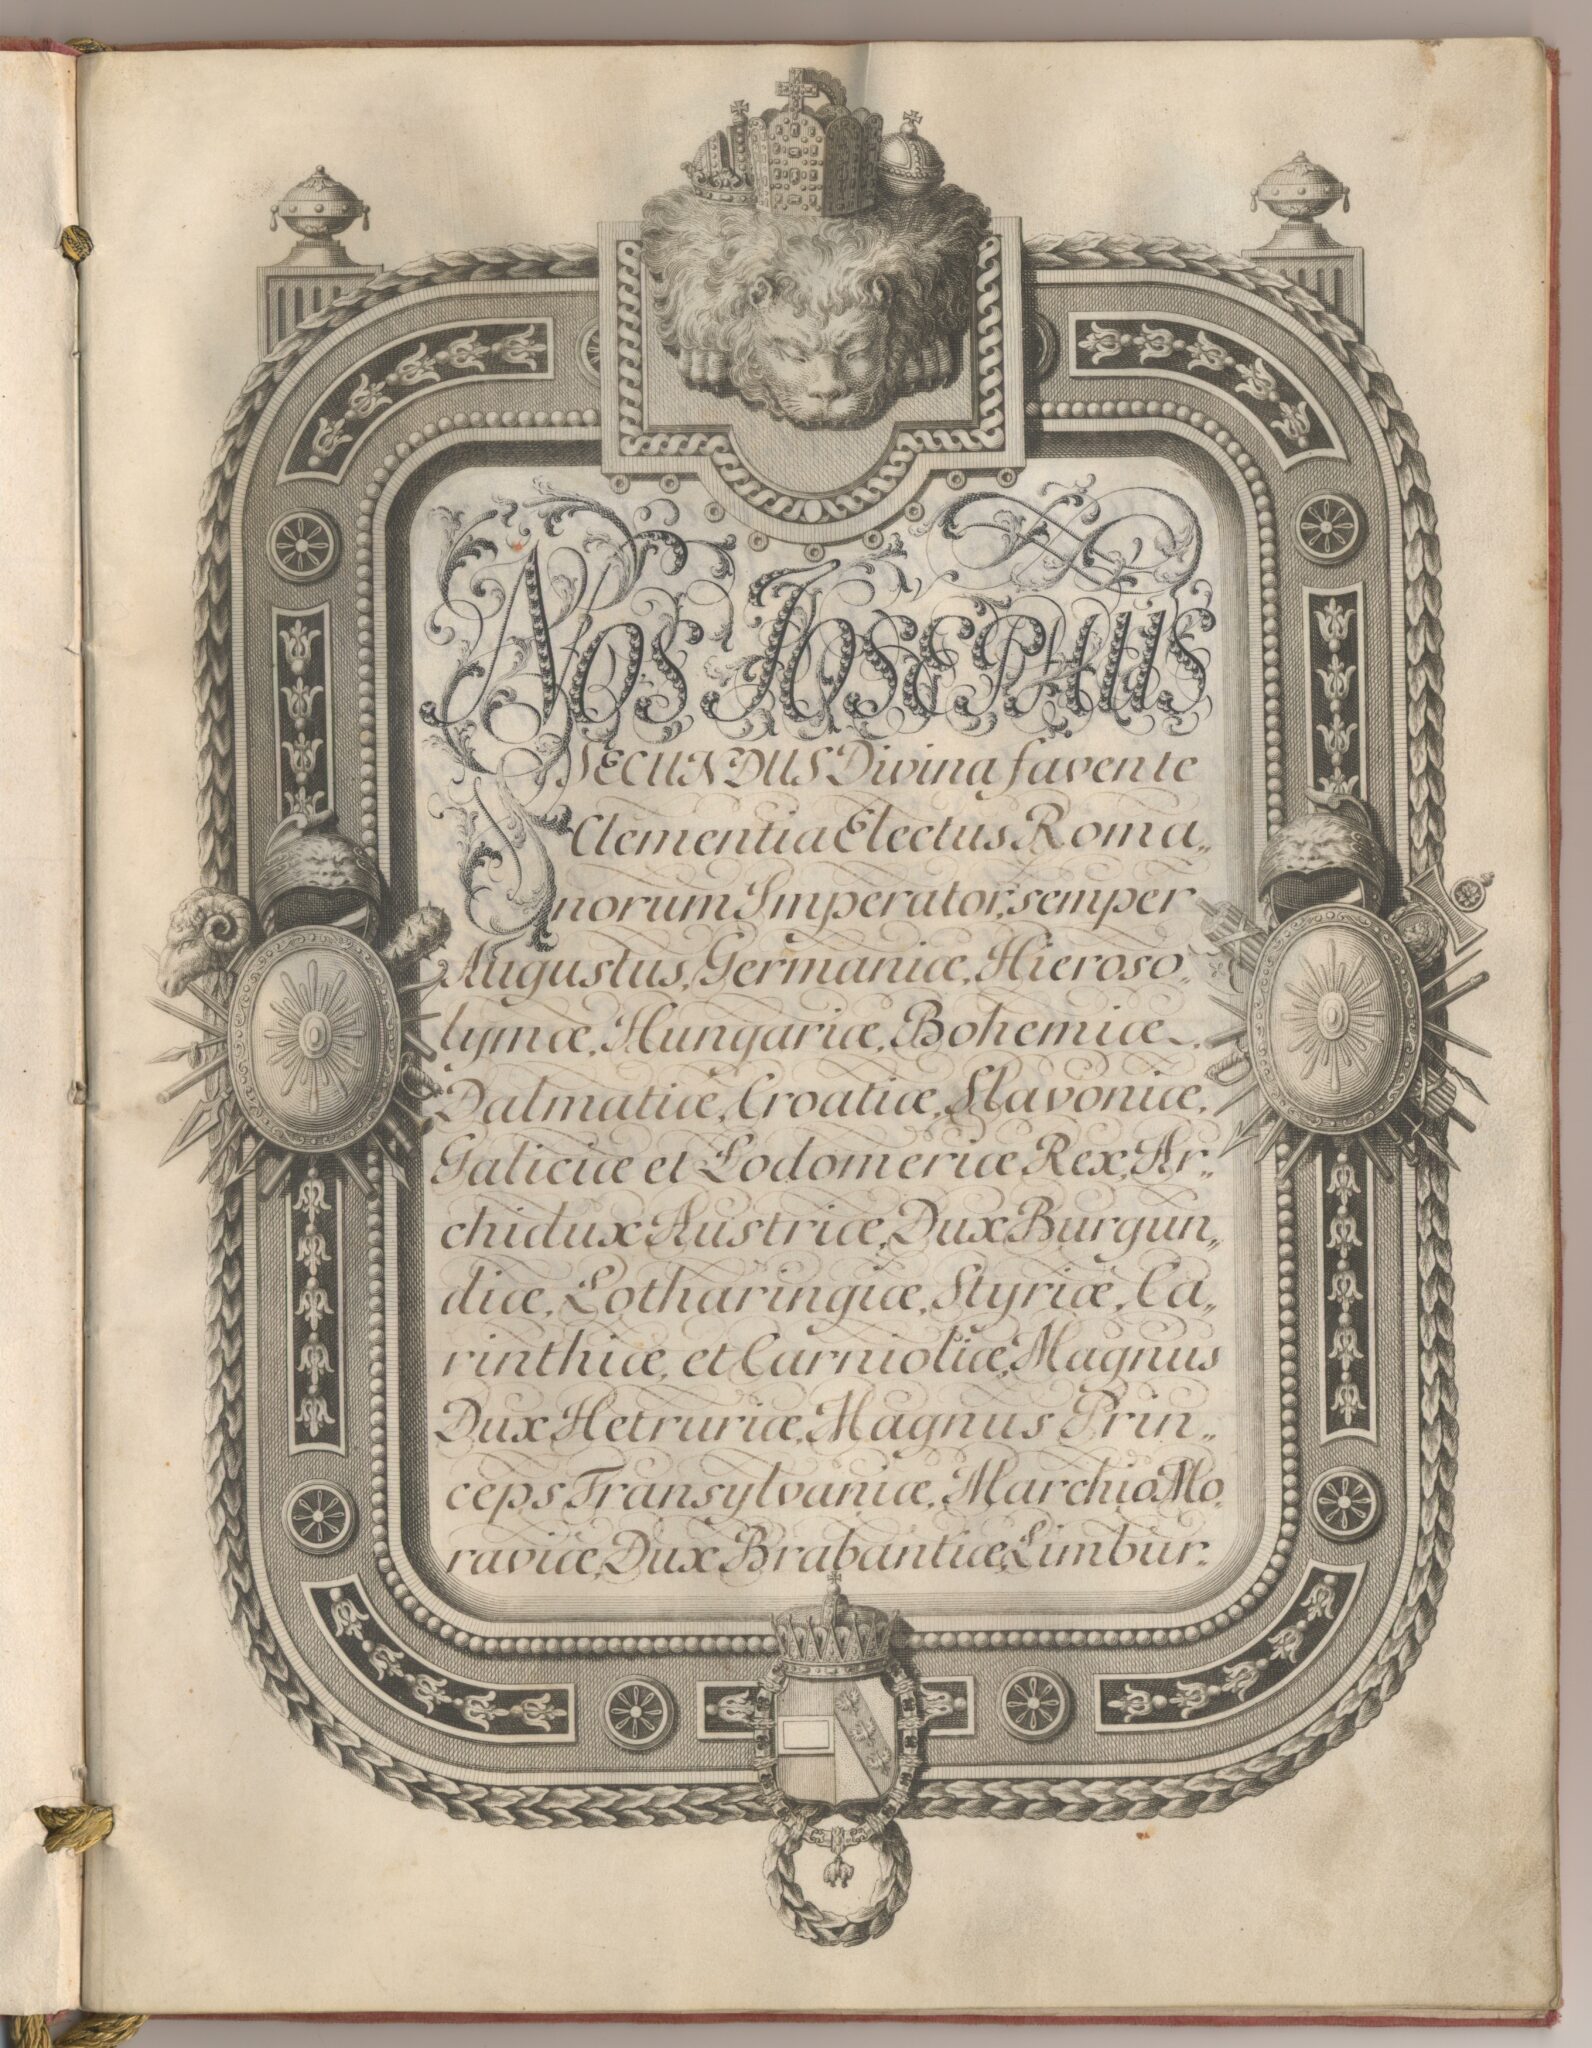 Nos Josephus
SECUNDUS Divina favente
Clementia Electus Roma„
norum Imperator, semper
Augustus, Germaniæ, Hieroso„
lymæ, Hungariæ, Bohemiæ,
Dalmatiæ, Croatiæ, Slavoniæ,
Galiciæ et Lodomeriæ Rex, Ar„
chidux Austriæ, Dux Burgun„
diæ, Lotharingiæ, Styriæ, Ca„
rinthiæ, et Carnioliæ, Magnus
Dux Hetruriæ, Magnus Prin„
ceps Transylvaniæ, Marchio Mo„
raviæ, Dux Brabantiæ, Limbur„